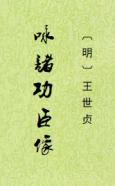 〔明〕王世贞
咏诸功臣像